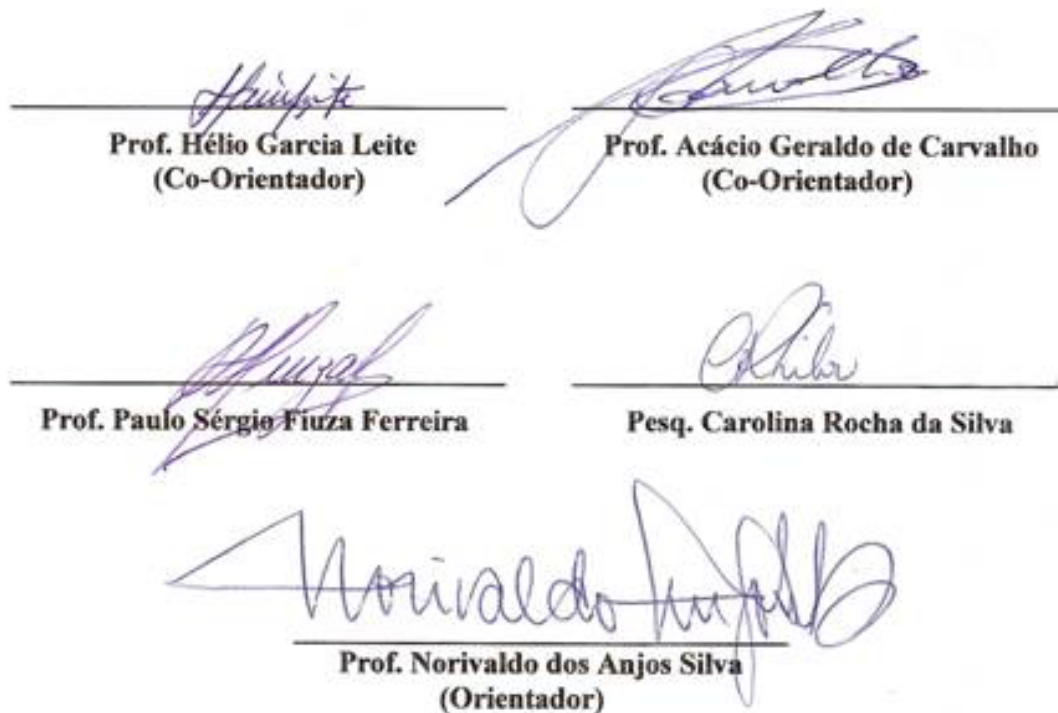 Prof. Hélio Garcia Leite
(Co-Orientador)
Prof. Acácio Geraldo de Carvalho
(Co-Orientador)
Prof. Paulo Sérgio Fiuza Ferreira
Pesq. Carolina Rocha da Silva
Norivaldo
Prof. Norivaldo dos Anjos Silva
(Orientador)